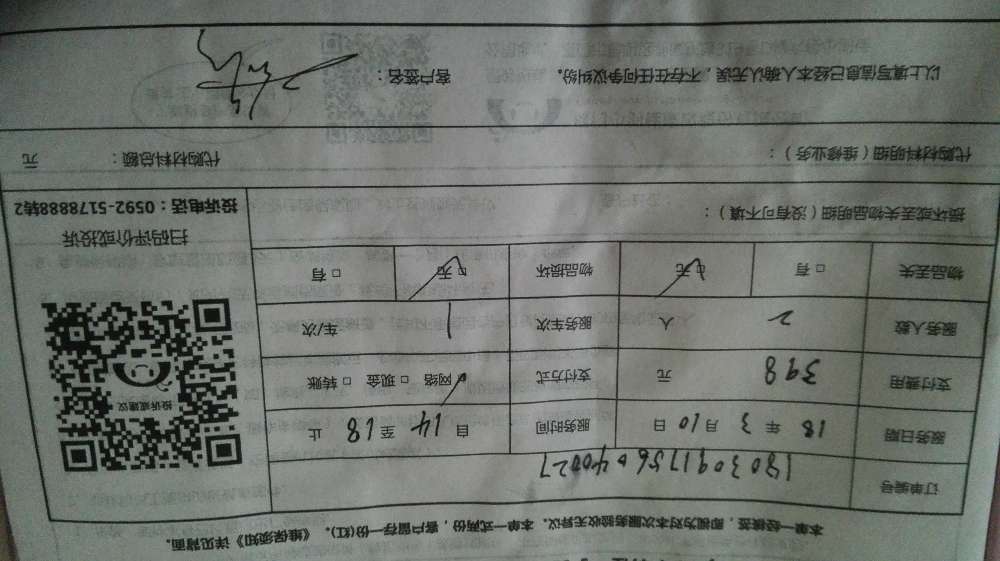 本单一经接签，即视为对本次服务验收无异议。本单一式两份，客户留存一份(红)。《维保须知》详见背面。
订单编号 1803091756040027
服务日期 18 年 3 月 10 日 服务时间 自 14 至 18 止
支付费用 398 元 支付方式 网络 □ 现金 □ 转账
服务人数 2 人 服务车次 1 车/次
物品丢失 □ 有 □ 无 物品损坏 □ 无 □ 有
投诉或建议
扫码评价或投诉
投诉电话：0592-5178888转2
损坏或丢失物品明细（没有可不填）：
代购材料明细（维修业务）： 代购材料总额： 元
以上填写信息已经本人确认无误，不存在任何争议纠纷。 客户签名：